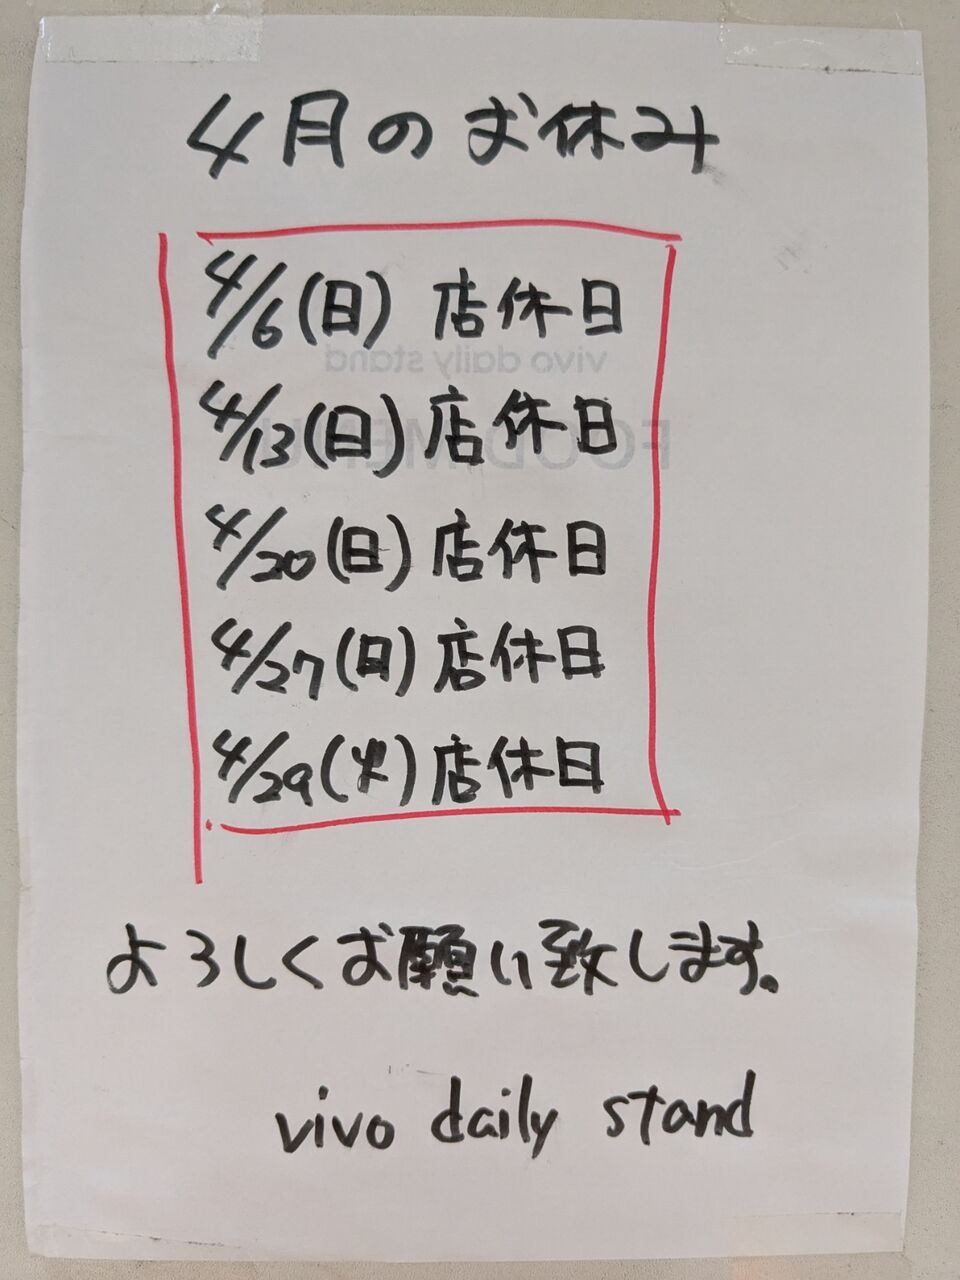 4月のお休み
4/6(日) 店休日
4/13(日) 店休日
4/20(日) 店休日
4/27(日) 店休日
4/29(火) 店休日
よろしくお願い致します。
vivo daily stand
vivo daily stand
FOOD MENU